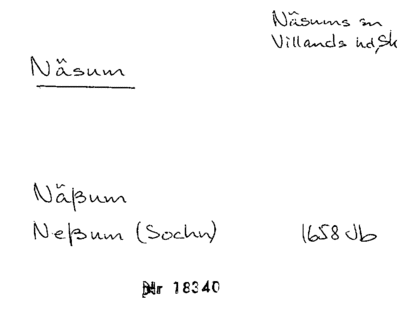 Näsums sn
Villands hd, Sk
Näsum
Näßum
Neßum (Sochn) 1658 Jb
Nr 18340